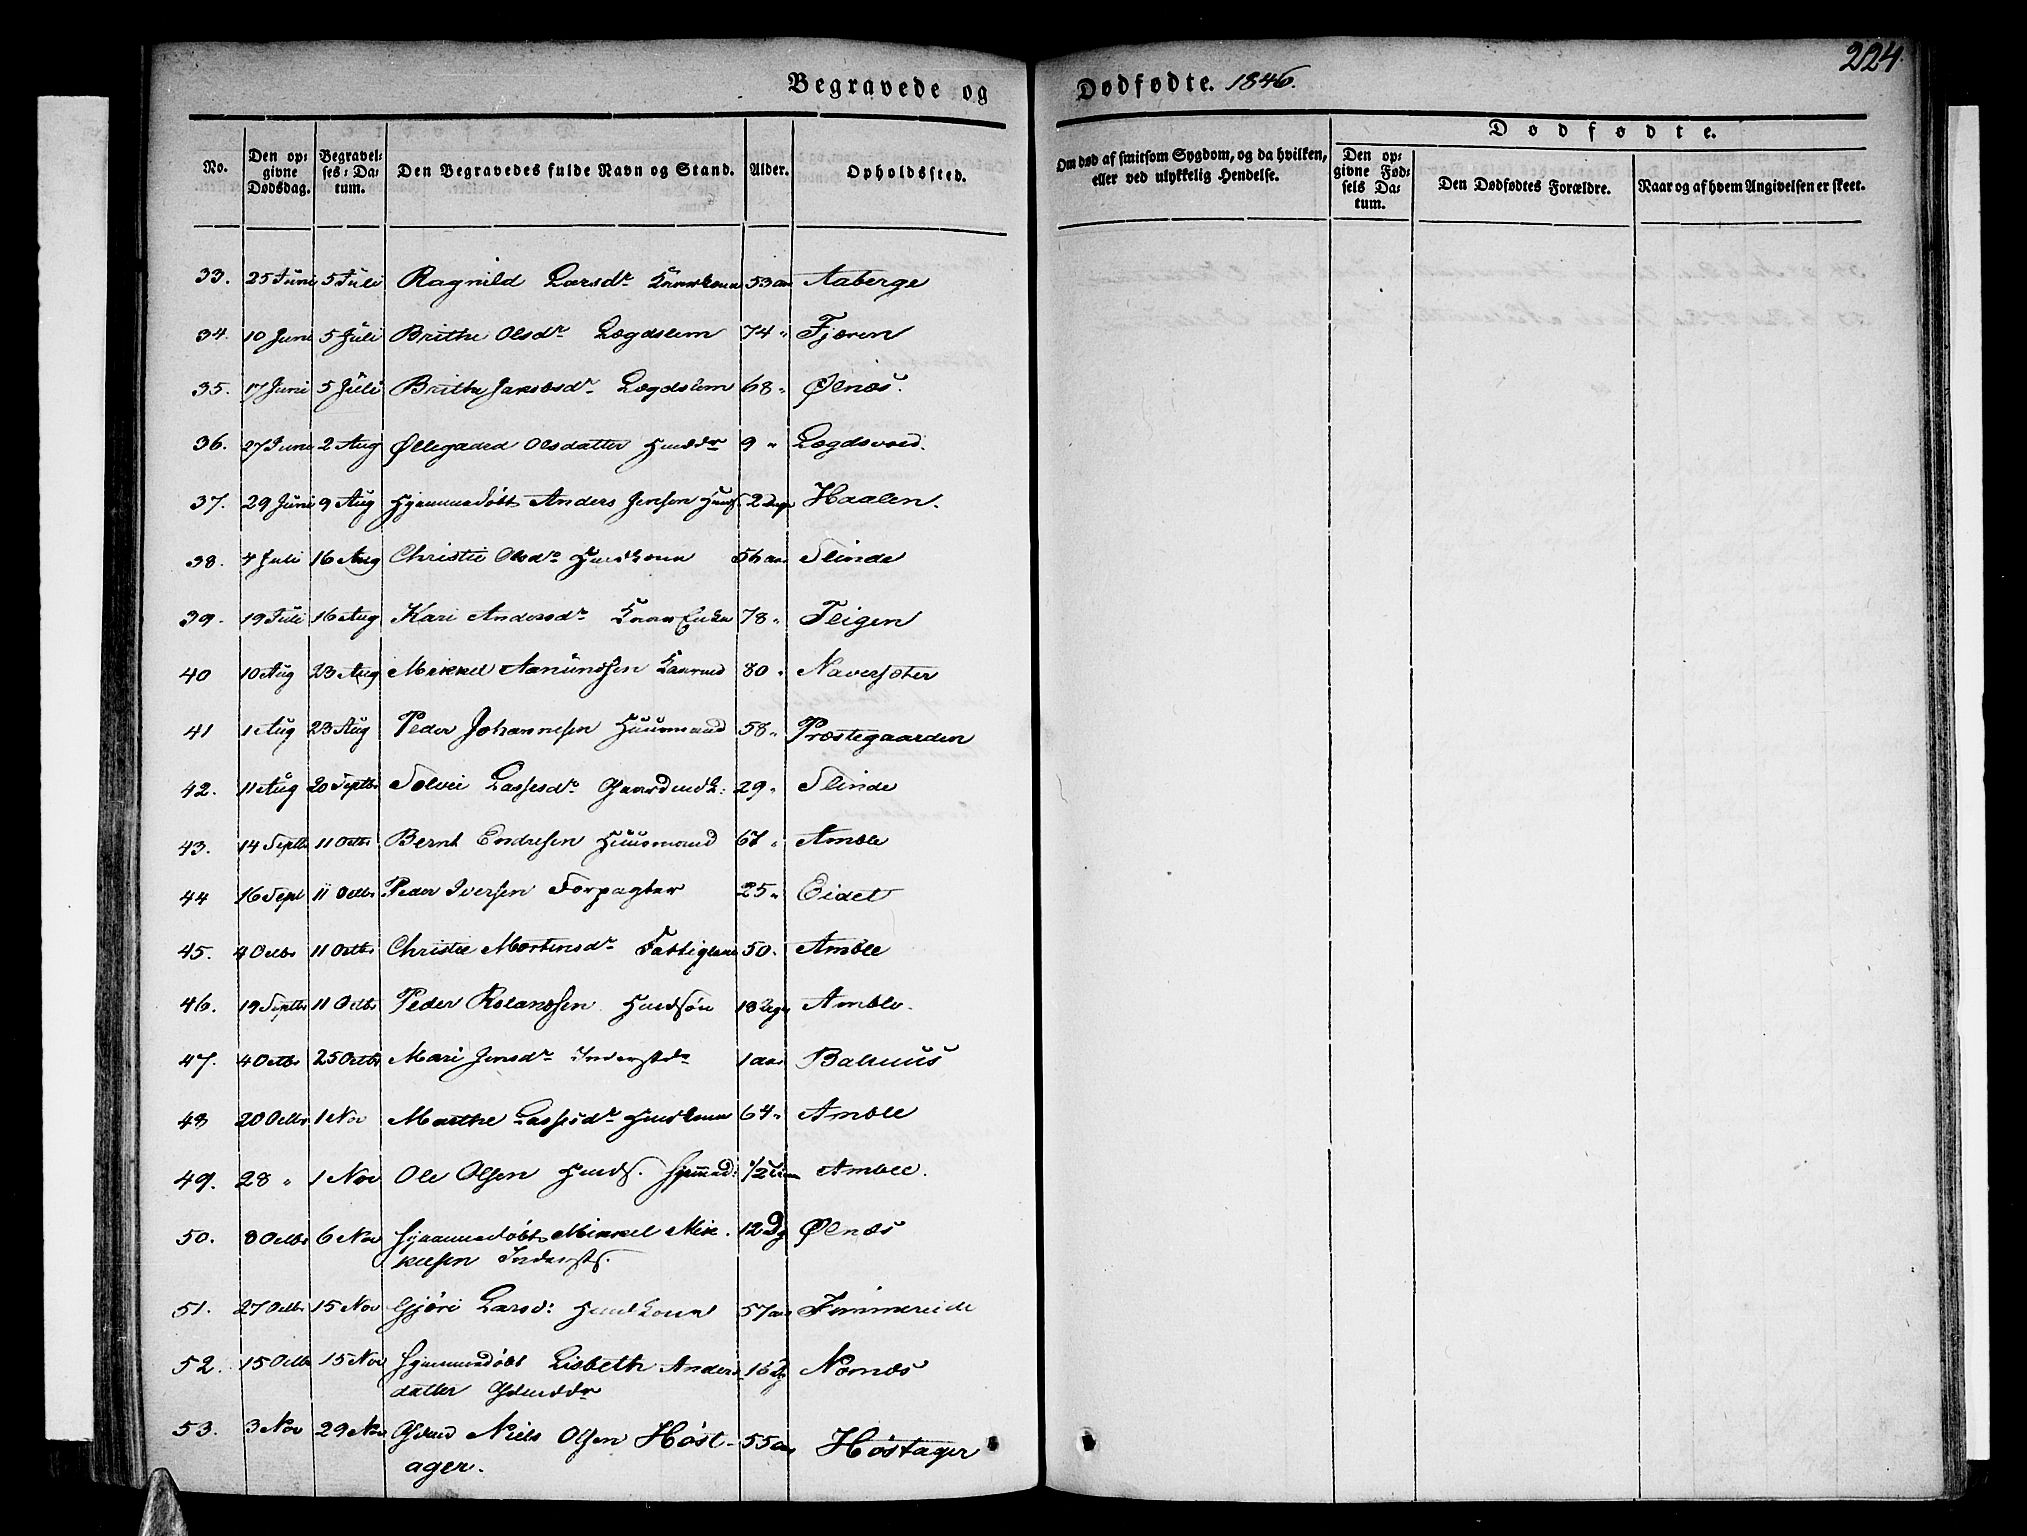 224.
Begravede og Dødfødte. 1846.
No. Den opgivne Dødsdag. Begravelses-Datum. Den Begravedes fulde Navn og Stand. Alder. Opholdssted. Om død af smitsom Sygdom, og da hvilken, eller ved ulykkelig Hendelse. Dødfødte. Den opgivne Fødsels Datum. Den Dødfødtes Forældre. Naar og af hvem Angivelsen er skeet.
33. 25 Juni 5 Juli Ragnild Larsdr 53 aar Aaberge
34. 10 Juni 5 Juli Brithe Olsdr Lægdslem 74 " Fjæren
35. 17 Juni 5 Juli Brithe Jakobsdr Lægdslem 68 " Ølnæs.
36. 27 Juni 2 Aug Øllegaard Olsdatter Huusdr 9 "
37. 29 Juni 9 Aug Hjemmedøbt Anders Jensen Huuss. 2 Dage Haalen.
38. 4 Juli 16 Aug Christie Olsdr Huuskone 56 aar Slinde
39. 19 Juli 16 Aug Kari Andersdr 78 " Teigen
40 10 Aug 23 Aug Mikkel Aamundsen 80 " Naversæter
41 1 Aug 23 Aug Peder Johannesen Huusmand 58 " Præstegaarden
42. 11 Aug 20 Septbr Solvei Lassesdr 29 " Slinde
43. 14 Septbr 11 Octbr Bernt Endresen Huusmand 67 " Amble
44 16 Sept 11 Octbr Peder Iversen Forpagter 25 " Eidet
45. 4 Octbr 11 Octbr Christie Mortensdr 50 " Amble
46. 19 Septbr 11 Octbr Peder Rolandsen Huussøn Amble.
47. 4 Octbr 25 Octbr Mari Jensdr Inderstdr 1 aar
48 20 Octbr 1 Nov Marthe Lassesdr Huuskone 64 " Amble
49. 28 " 1 Nov Ole Olsen Huuss. Hjemmed: 1/2 Time Amble.
50. 8 Octbr 6 Nov Hjemmedøbt Mikkel Mik-
kelsen Indersts. 12 Dg Ølnæs
51. 27 Octbr 15 Nov Gjøri Larsd: Huuskone 57 aar Fimmereide
52. 15 Octbr 15 Nov Hjemmedøbt Lisbeth Anders-
datter Gdmdsdr 16 Dg Nornæs
53. 3 Nov 29 Nov Gdmd Niels Olsen Høst-
ager. 55 aar Høstager